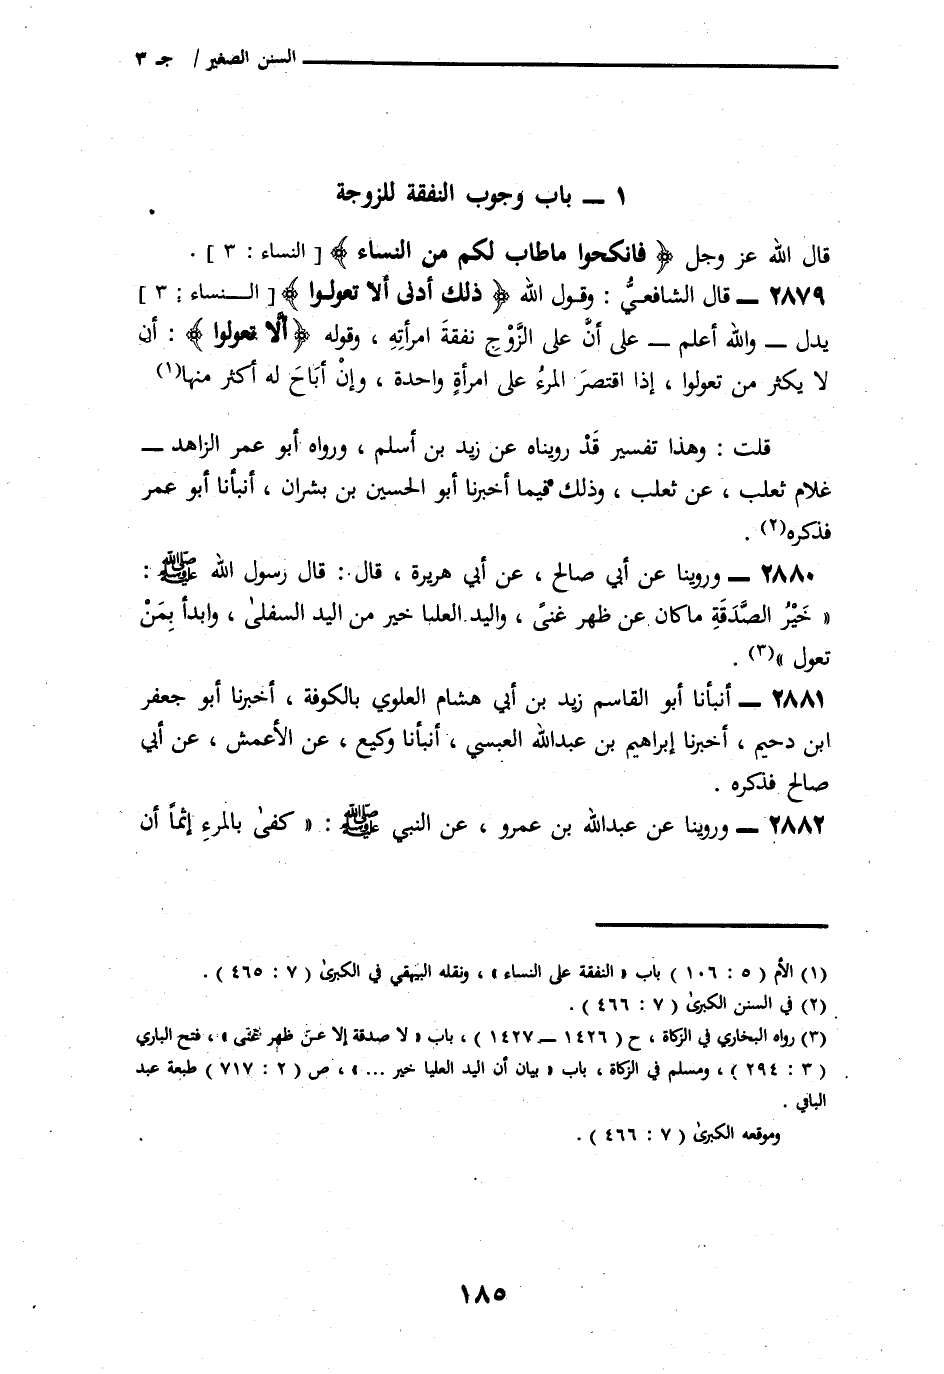 السنن الصغير / جـ ٣
١ ــ باب وجوب النفقة للزوجة
قال الله عز وجل ﴿ فانكحوا ماطاب لكم من النساء ﴾ [ النساء : ٣ ] .
٢٨٧٩ ــ قال الشافعيُّ : وقول الله ﴿ ذلك أدنى ألا تعولوا ﴾ [ النساء : ٣ ]
يدل ــ والله أعلم ــ على أنَّ على الزَّوْجِ نفقةَ امرأتِهِ ، وقوله ﴿ ألَّا تعولوا ﴾ : أن
لا يكثر من تعولوا ، إذا اقتصرَ المرءُ على امرأةٍ واحدة ، وإنْ أبَاحَ له أكثر منها(١)
قلت : وهذا تفسير قَدْ رويناه عن زيد بن أسلم ، ورواه أبو عمر الزاهد ــ
غلام ثعلب ، عن ثعلب ، وذلك فيما أخبرنا أبو الحسين بن بشران ، أنبأنا أبو عمر
فذكره(٢) .
٢٨٨٠ ــ وروينا عن أبي صالح ، عن أبي هريرة ، قال : قال رسول الله ﷺ :
« خَيْرُ الصَّدَقَةِ ماكان عن ظهر غنىً ، واليد العليا خير من اليد السفلىٰ ، وابدأ بِمَنْ
تعول »(٣) .
٢٨٨١ ــ أنبأنا أبو القاسم زيد بن أبي هشام العلوي بالكوفة ، أخبرنا أبو جعفر
ابن دحيم ، أخبرنا إبراهيم بن عبدالله العبسي ، أنبأنا وكيع ، عن الأعمش ، عن أبي
صالح فذكره .
٢٨٨٢ ــ وروينا عن عبدالله بن عمرو ، عن النبي ﷺ : « كفىٰ بالمرءِ إثماً أن
(١) الأم ( ٥ : ١٠٦ ) باب « النفقة على النساء » ، ونقله البيهقي في الكبرىٰ ( ٧ : ٤٦٥ ) .
(٢) في السنن الكبرىٰ ( ٧ : ٤٦٦ ) .
(٣) رواه البخاري في الزكاة ، ح ( ١٤٢٦ ــ ١٤٢٧ ) ، باب « لا صدقة إلا عن ظهر غنى » ، فتح الباري
( ٣ : ٢٩٤ ) ، ومسلم في الزكاة ، باب « بيان أن اليد العليا خير ... » ، ص ( ٢ : ٧١٧ ) طبعة عبد
الباقي .
وموقعه الكبرىٰ ( ٧ : ٤٦٦ ) .
١٨٥